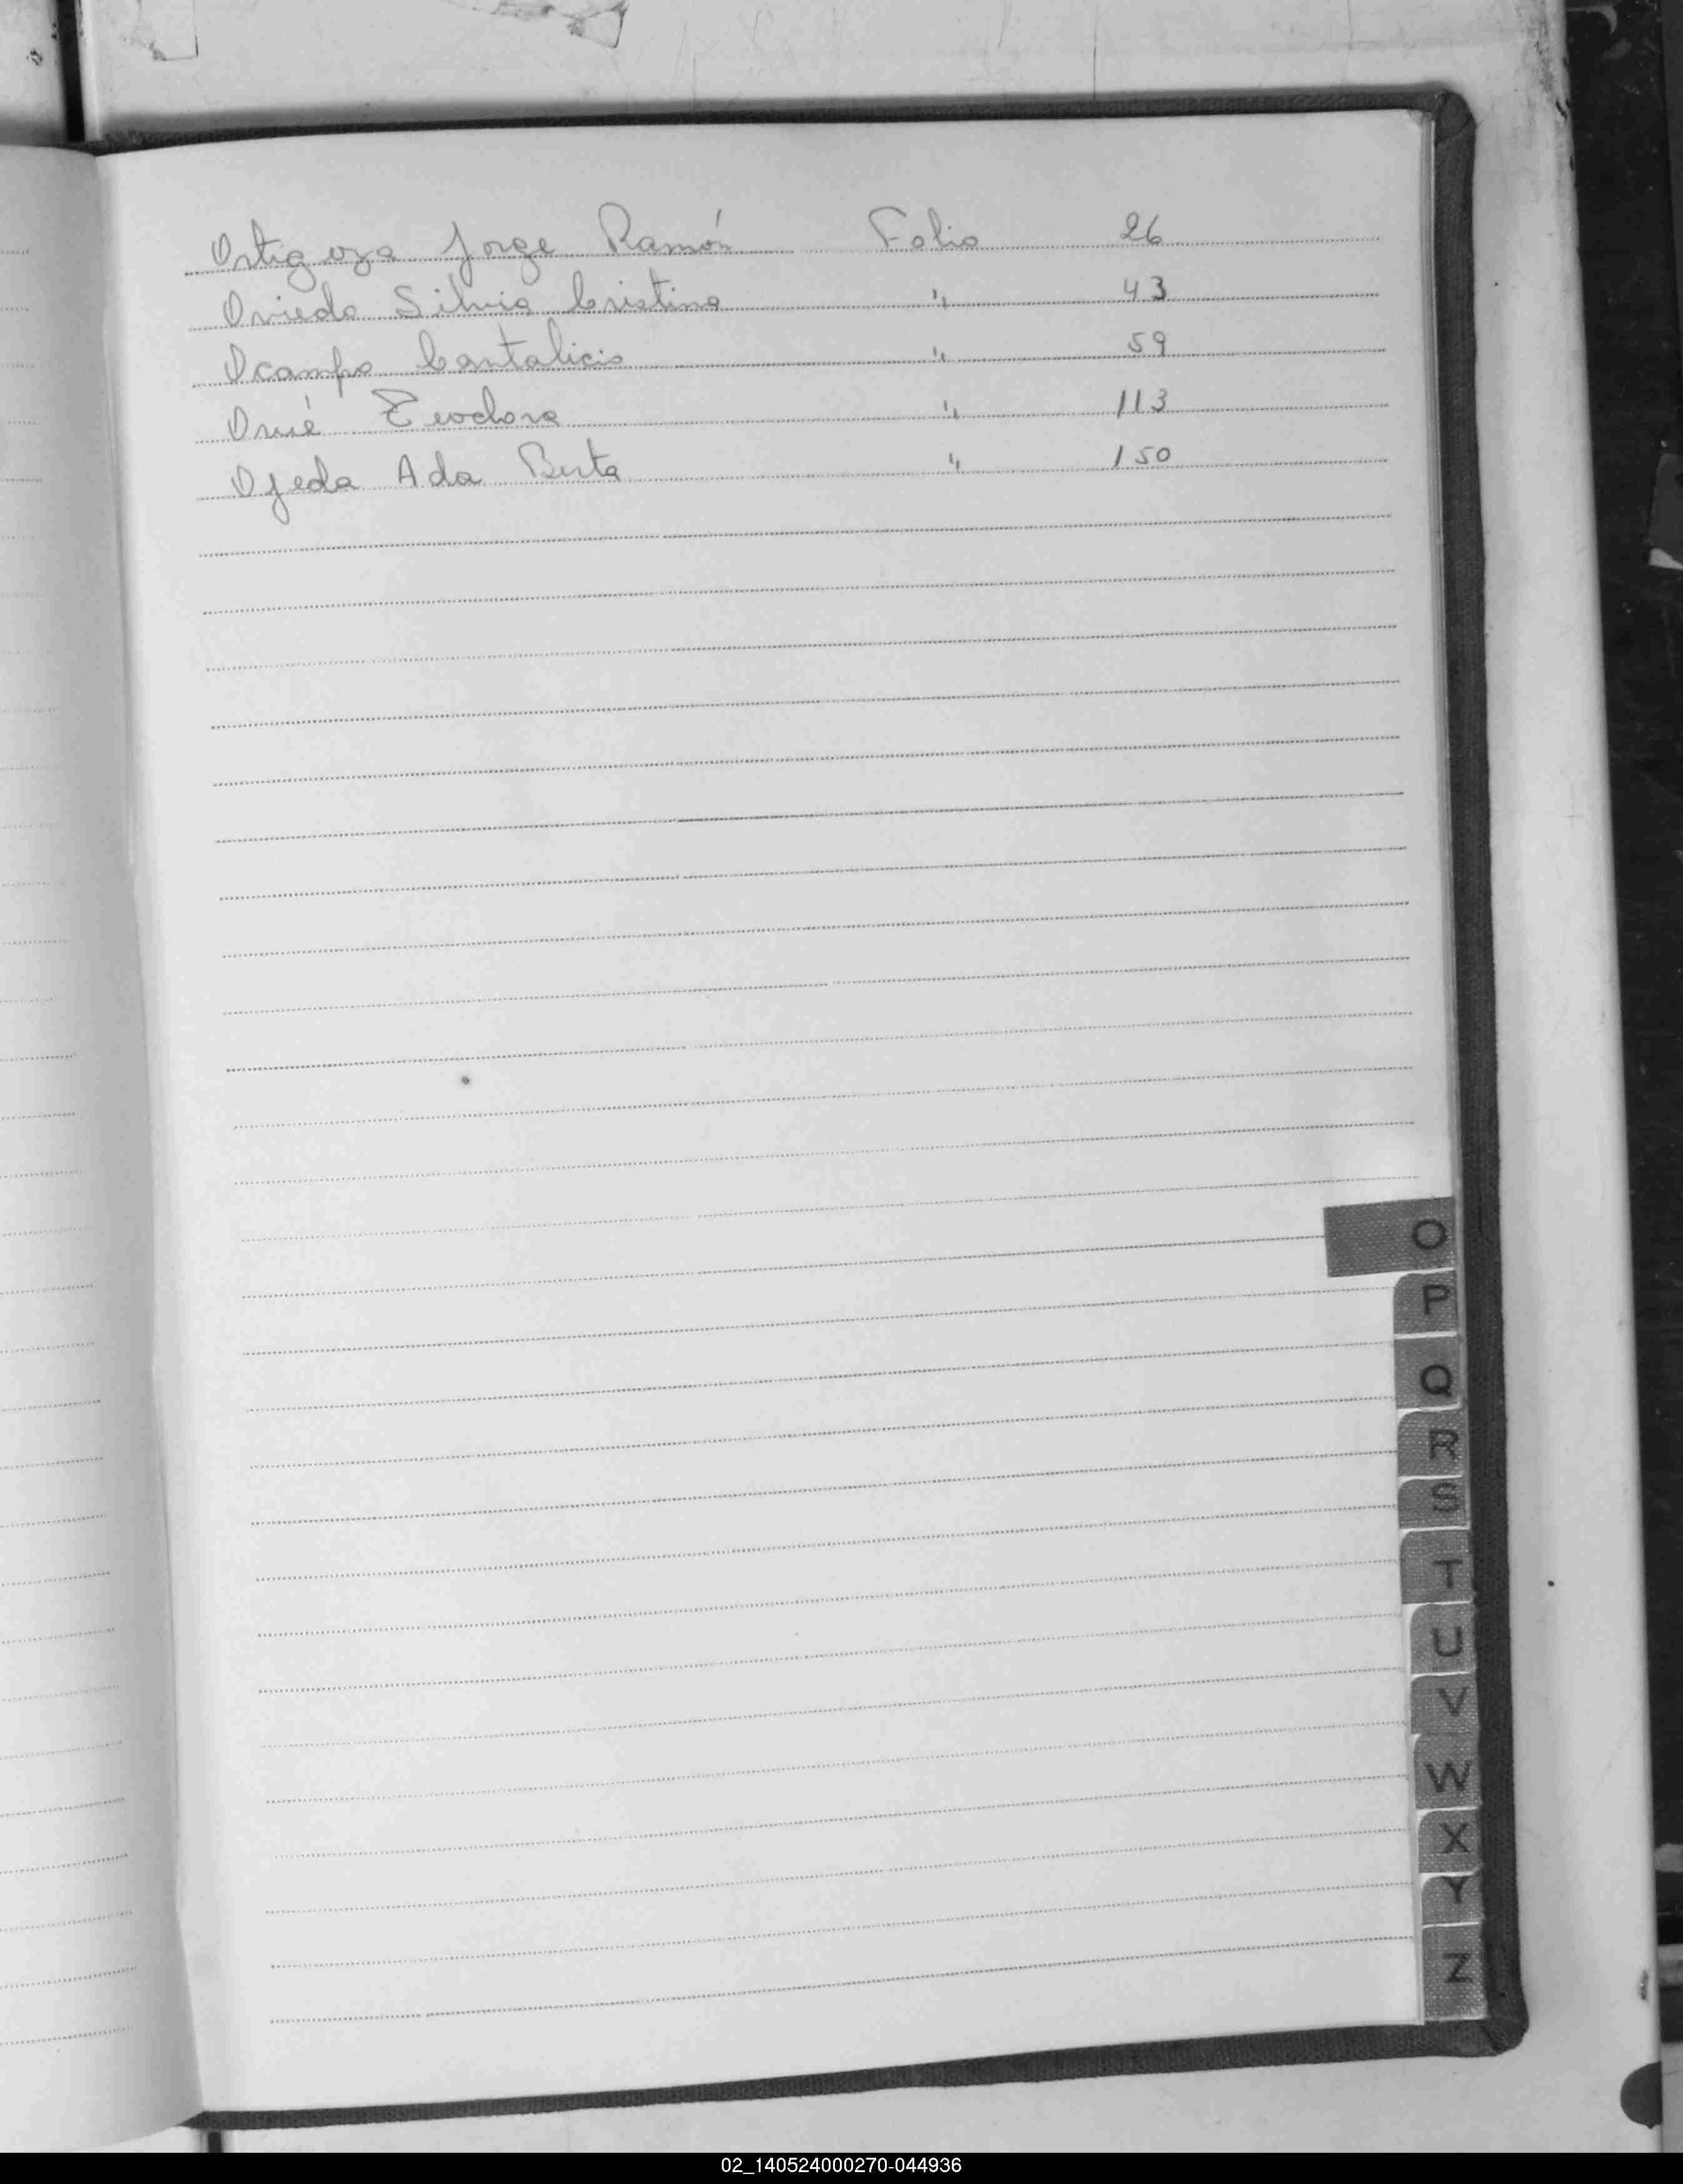 Ortigoza Jorge Ramón Folio 26
Oviedo Silvia Cristina " 43
Ocampo Cantalicio " 59
Omé Teodora " 113
Ojeda Ada Berta " 150
O
P
Q
R
S
T
U
V
W
X
Y
Z
02_140524000270-044936